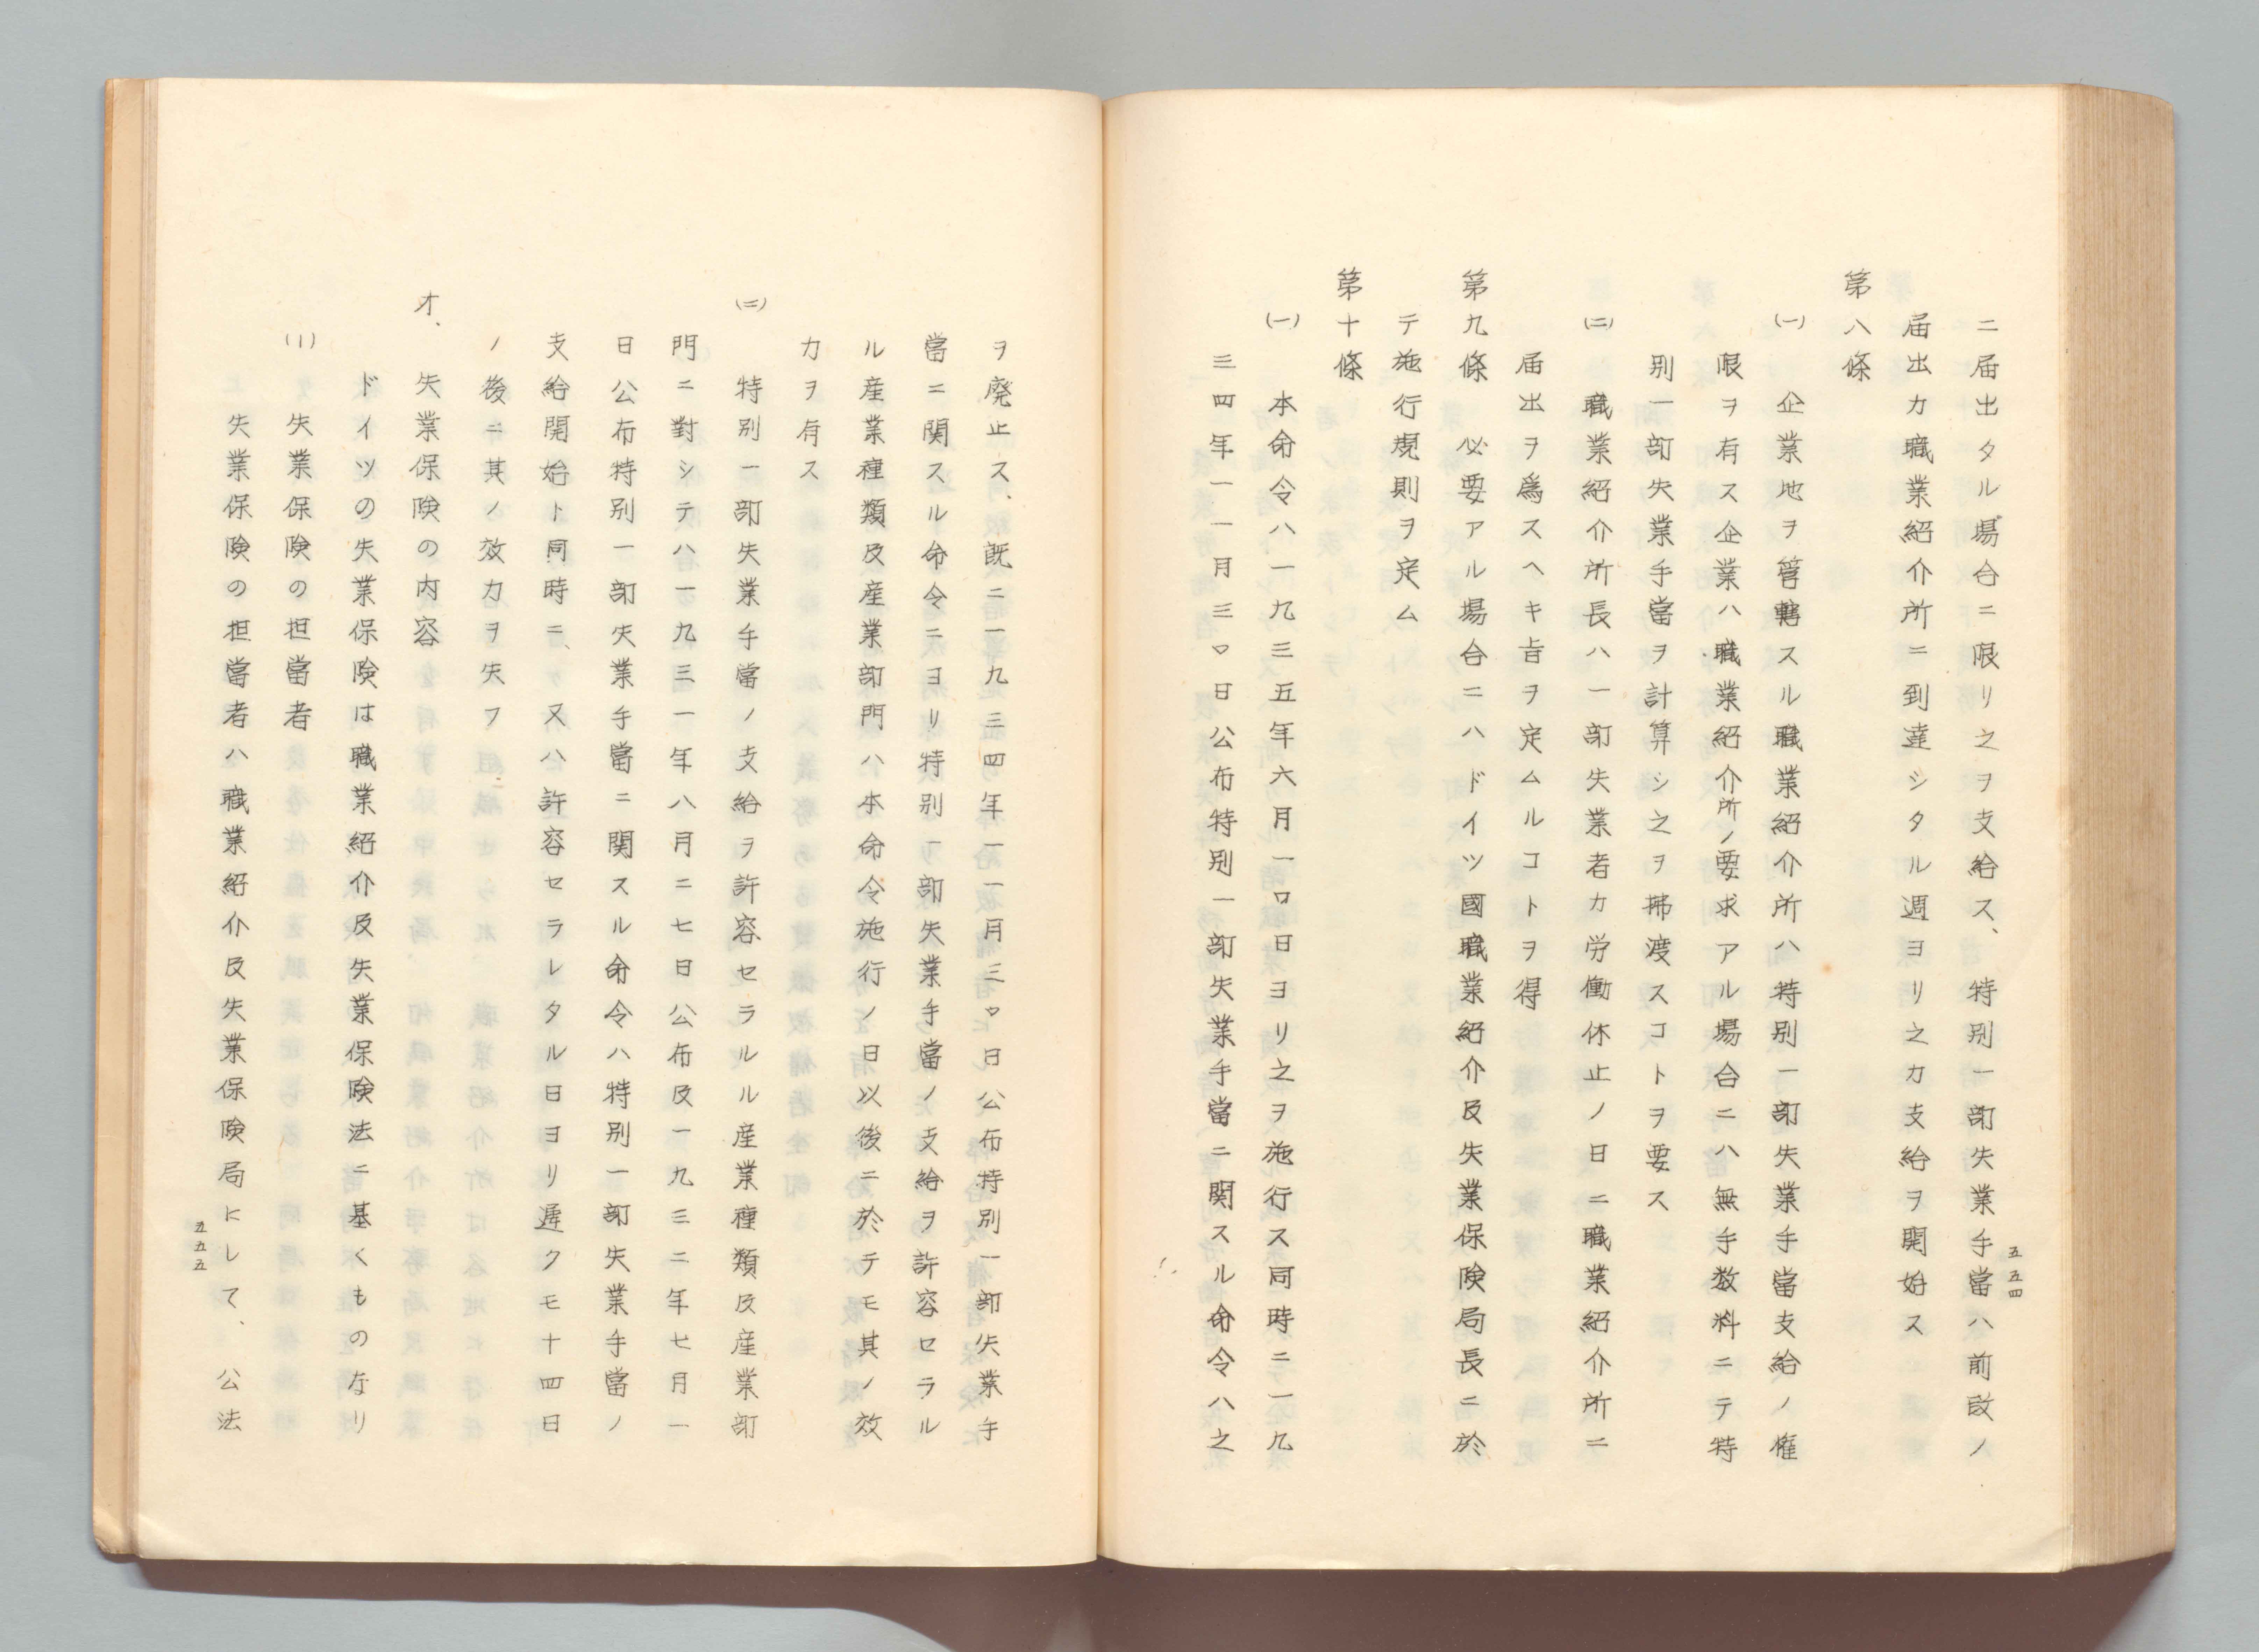 ニ届出タル場合ニ限リ之ヲ支給ス、特別一部失業手當ハ前段ノ
届出カ職業紹介所ニ到達シタル週ヨリ之カ支給ヲ開始ス
第八條
(一) 企業地ヲ管轄スル職業紹介所ハ特別一部失業手當支給ノ権
限ヲ有ス企業ハ職業紹介所ノ要求アル場合ニハ無手数料ニテ特
別一部失業手當ヲ計算シ之ヲ拂渡スコトヲ要ス
(二) 職業紹介所長ハ一部失業者カ労働休止ノ日ニ職業紹介所ニ
届出ヲ爲スヘキ旨ヲ定ムルコトヲ得
第九條 必要アル場合ニハドイツ國職業紹介及失業保険局長ニ於
テ施行規則ヲ定ム
第十條
(一) 本命令ハ一九三五年六月一〇日ヨリ之ヲ施行ス同時ニ一九
三四年一一月三〇日公布特別一部失業手當ニ関スル命令ハ之
五五四
ヲ廃止ス、既ニ一九三四年一一月三〇日公布特別一部失業手
當ニ関スル命令ニヨリ特別一部失業手當ノ支給ヲ許容セラル
ル産業種類及産業部門ハ本命令施行ノ日以後ニ於テモ其ノ效
力ヲ有ス
(二) 特別一部失業手當ノ支給ヲ許容セラルル産業種類及産業部
門ニ對シテハ一九三一年八月二七日公布及一九三二年七月一
日公布特別一部失業手當ニ関スル命令ハ特別一部失業手當ノ
支給開始ト同時ニ、又ハ許容セラレタル日ヨリ遅クモ十四日
ノ後ニ其ノ效力ヲ失フ
オ、失業保険の内容
ドイツの失業保険は職業紹介及失業保険法ニ基くものなり
(1) 失業保険の担當者
失業保険の担當者ハ職業紹介及失業保険局にして、公法
五五五